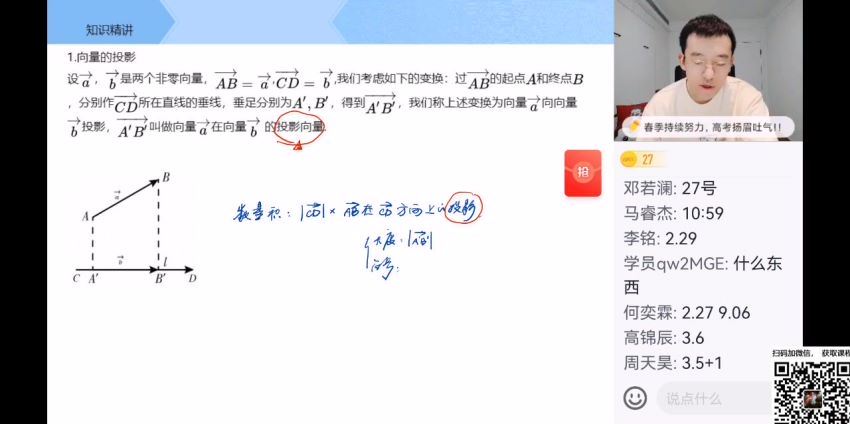 知识精讲
1.向量的投影
设a,b是两个非零向量，AB=a,CD=b,我们考虑如下的变换：过AB的起点A和终点B
，分别作CD所在直线的垂线，垂足分别为A′,B′，得到A′B′，我们称上述变换为向量a向向量
b投影，A′B′叫做向量a在向量b的投影向量.
B
a
A
b
l
C A′ B′ D
数量积：|CD|×AB在CD方向上的投影
长度：|A′B′|
符号：
抢
春季持续努力，高考扬眉吐气!!
27
邓若澜: 27号
马睿杰: 10:59
李铭: 2.29
学员qw2MGE: 什么东
西
何奕霖: 2.27 9.06
高锦辰: 3.6
周天昊: 3.5+1
说点什么
扫码加微信， 获取课程